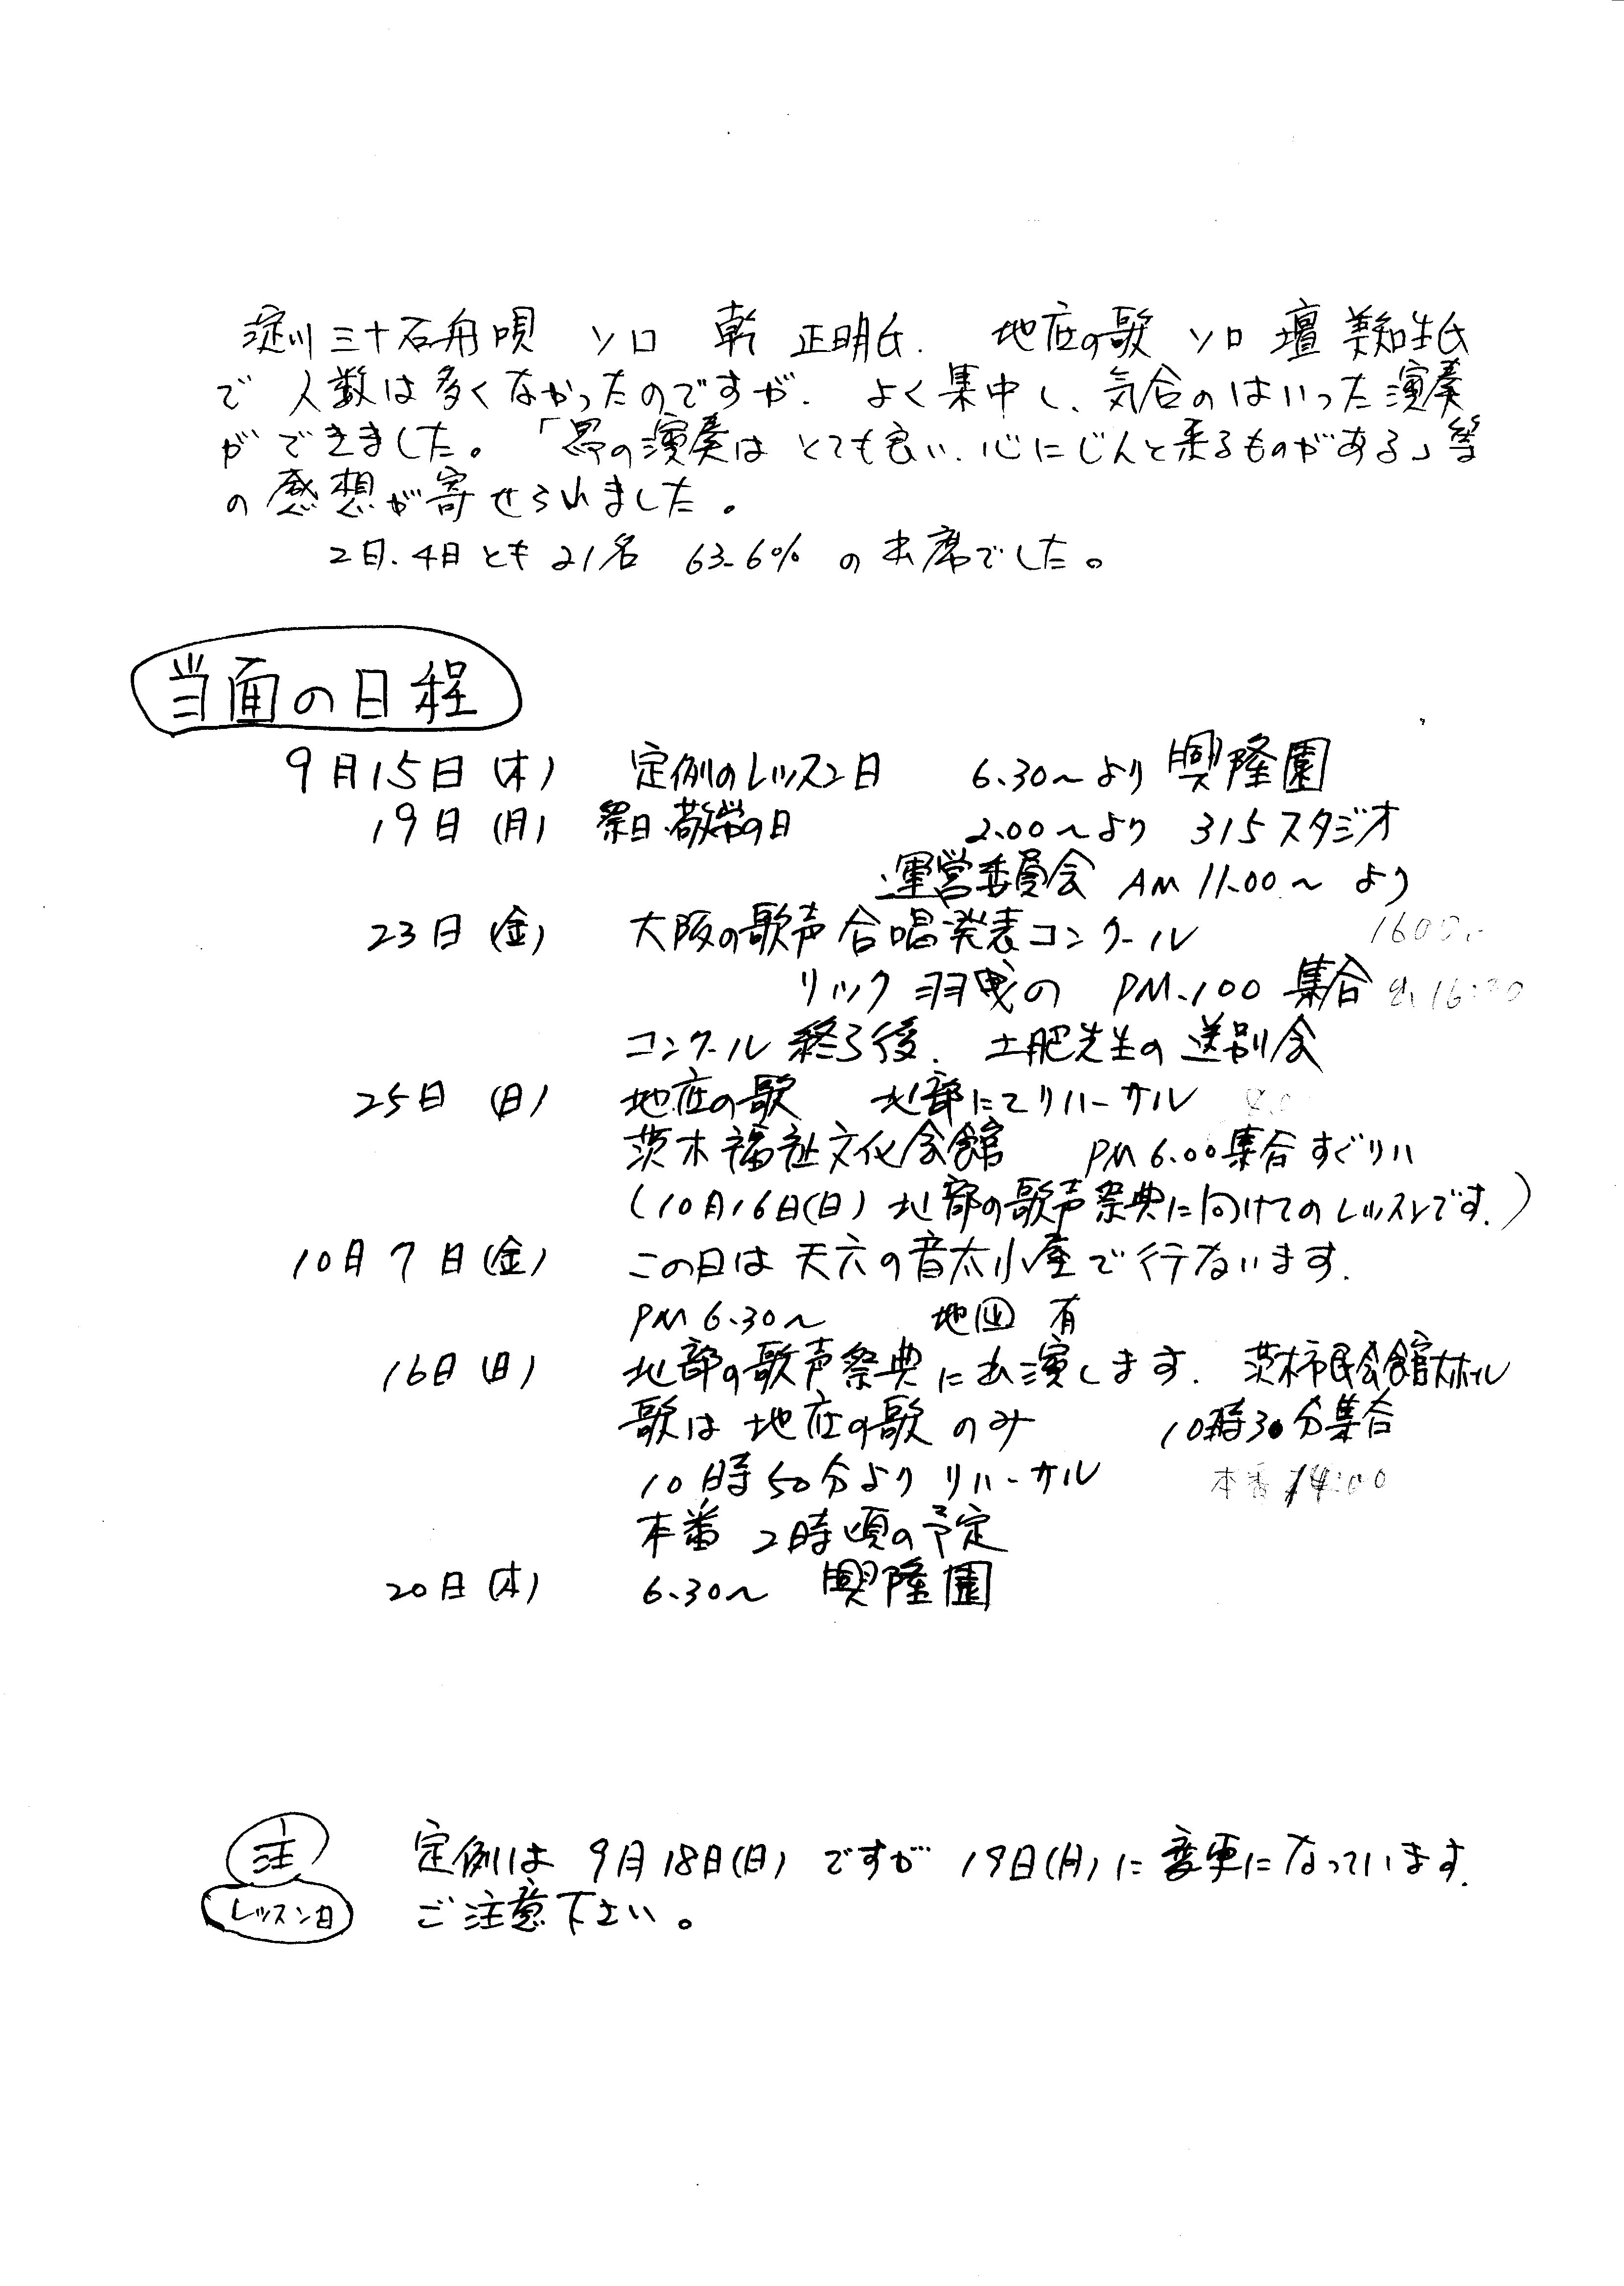 淀川三十石舟唄 ソロ 乾 正明氏. 地底の歌 ソロ 壇 美知生氏
で 人数は多くなかったのですが. よく集中し、気合のはいった演奏
ができました。「昴の演奏は とても良い. 心にじんと来るものがある」等
の感想が寄せられました。
2日.4日とも21名 63.6% の出席でした。
当面の日程
9月15日(木) 定例のレッスン日 6.30〜より 興隆園
19日(月) 祭日.敬労の日 2.00〜より 315スタジオ
運営委員会 AM 11.00〜 より
23日(金) 大阪の歌声 合唱発表コンクール 1600.
リック 羽曳の PM.100 集合 16:20
コンクール終了後. 土肥先生の送別会
25日(日) 地底の歌 北部にてリハーサル
茨木福祉文化会館 PM 6.00集合 すぐリハ
(10月16日(日) 北部の歌声祭典に向けてのレッスンです.)
10月7日(金) この日は 天六の音太小屋で行ないます.
PM 6.30〜 地図 有
16日(日) 北部の歌声祭典に出演します. 茨木市民会館大ホール
歌は 地底の歌 のみ 10時30分集合
10時50分より リハーサル 本番 14:00
本番 2時頃の予定
20日(木) 6.30〜 興隆園
注 定例は 9月18日(日) ですが 19日(月)に変更になっています.
レッスン日 ご注意下さい。